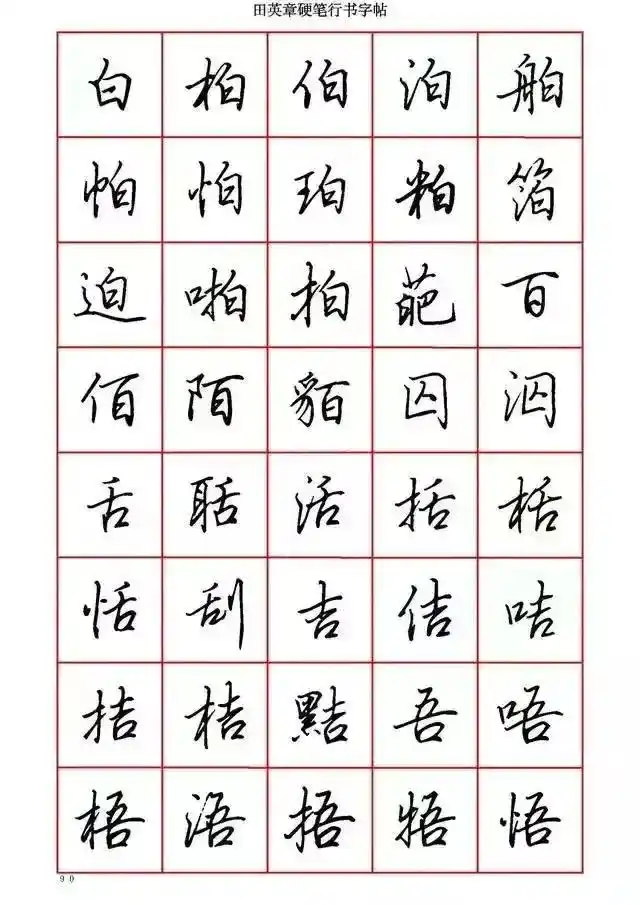 田英章硬笔行书字帖
白柏伯泊舶
帕怕珀粕箔
迫啪拍葩百
佰陌貊囚泅
舌聒活括栝
恬刮吉佶咭
拮桔黠吾唔
梧浯捂牾悟
90